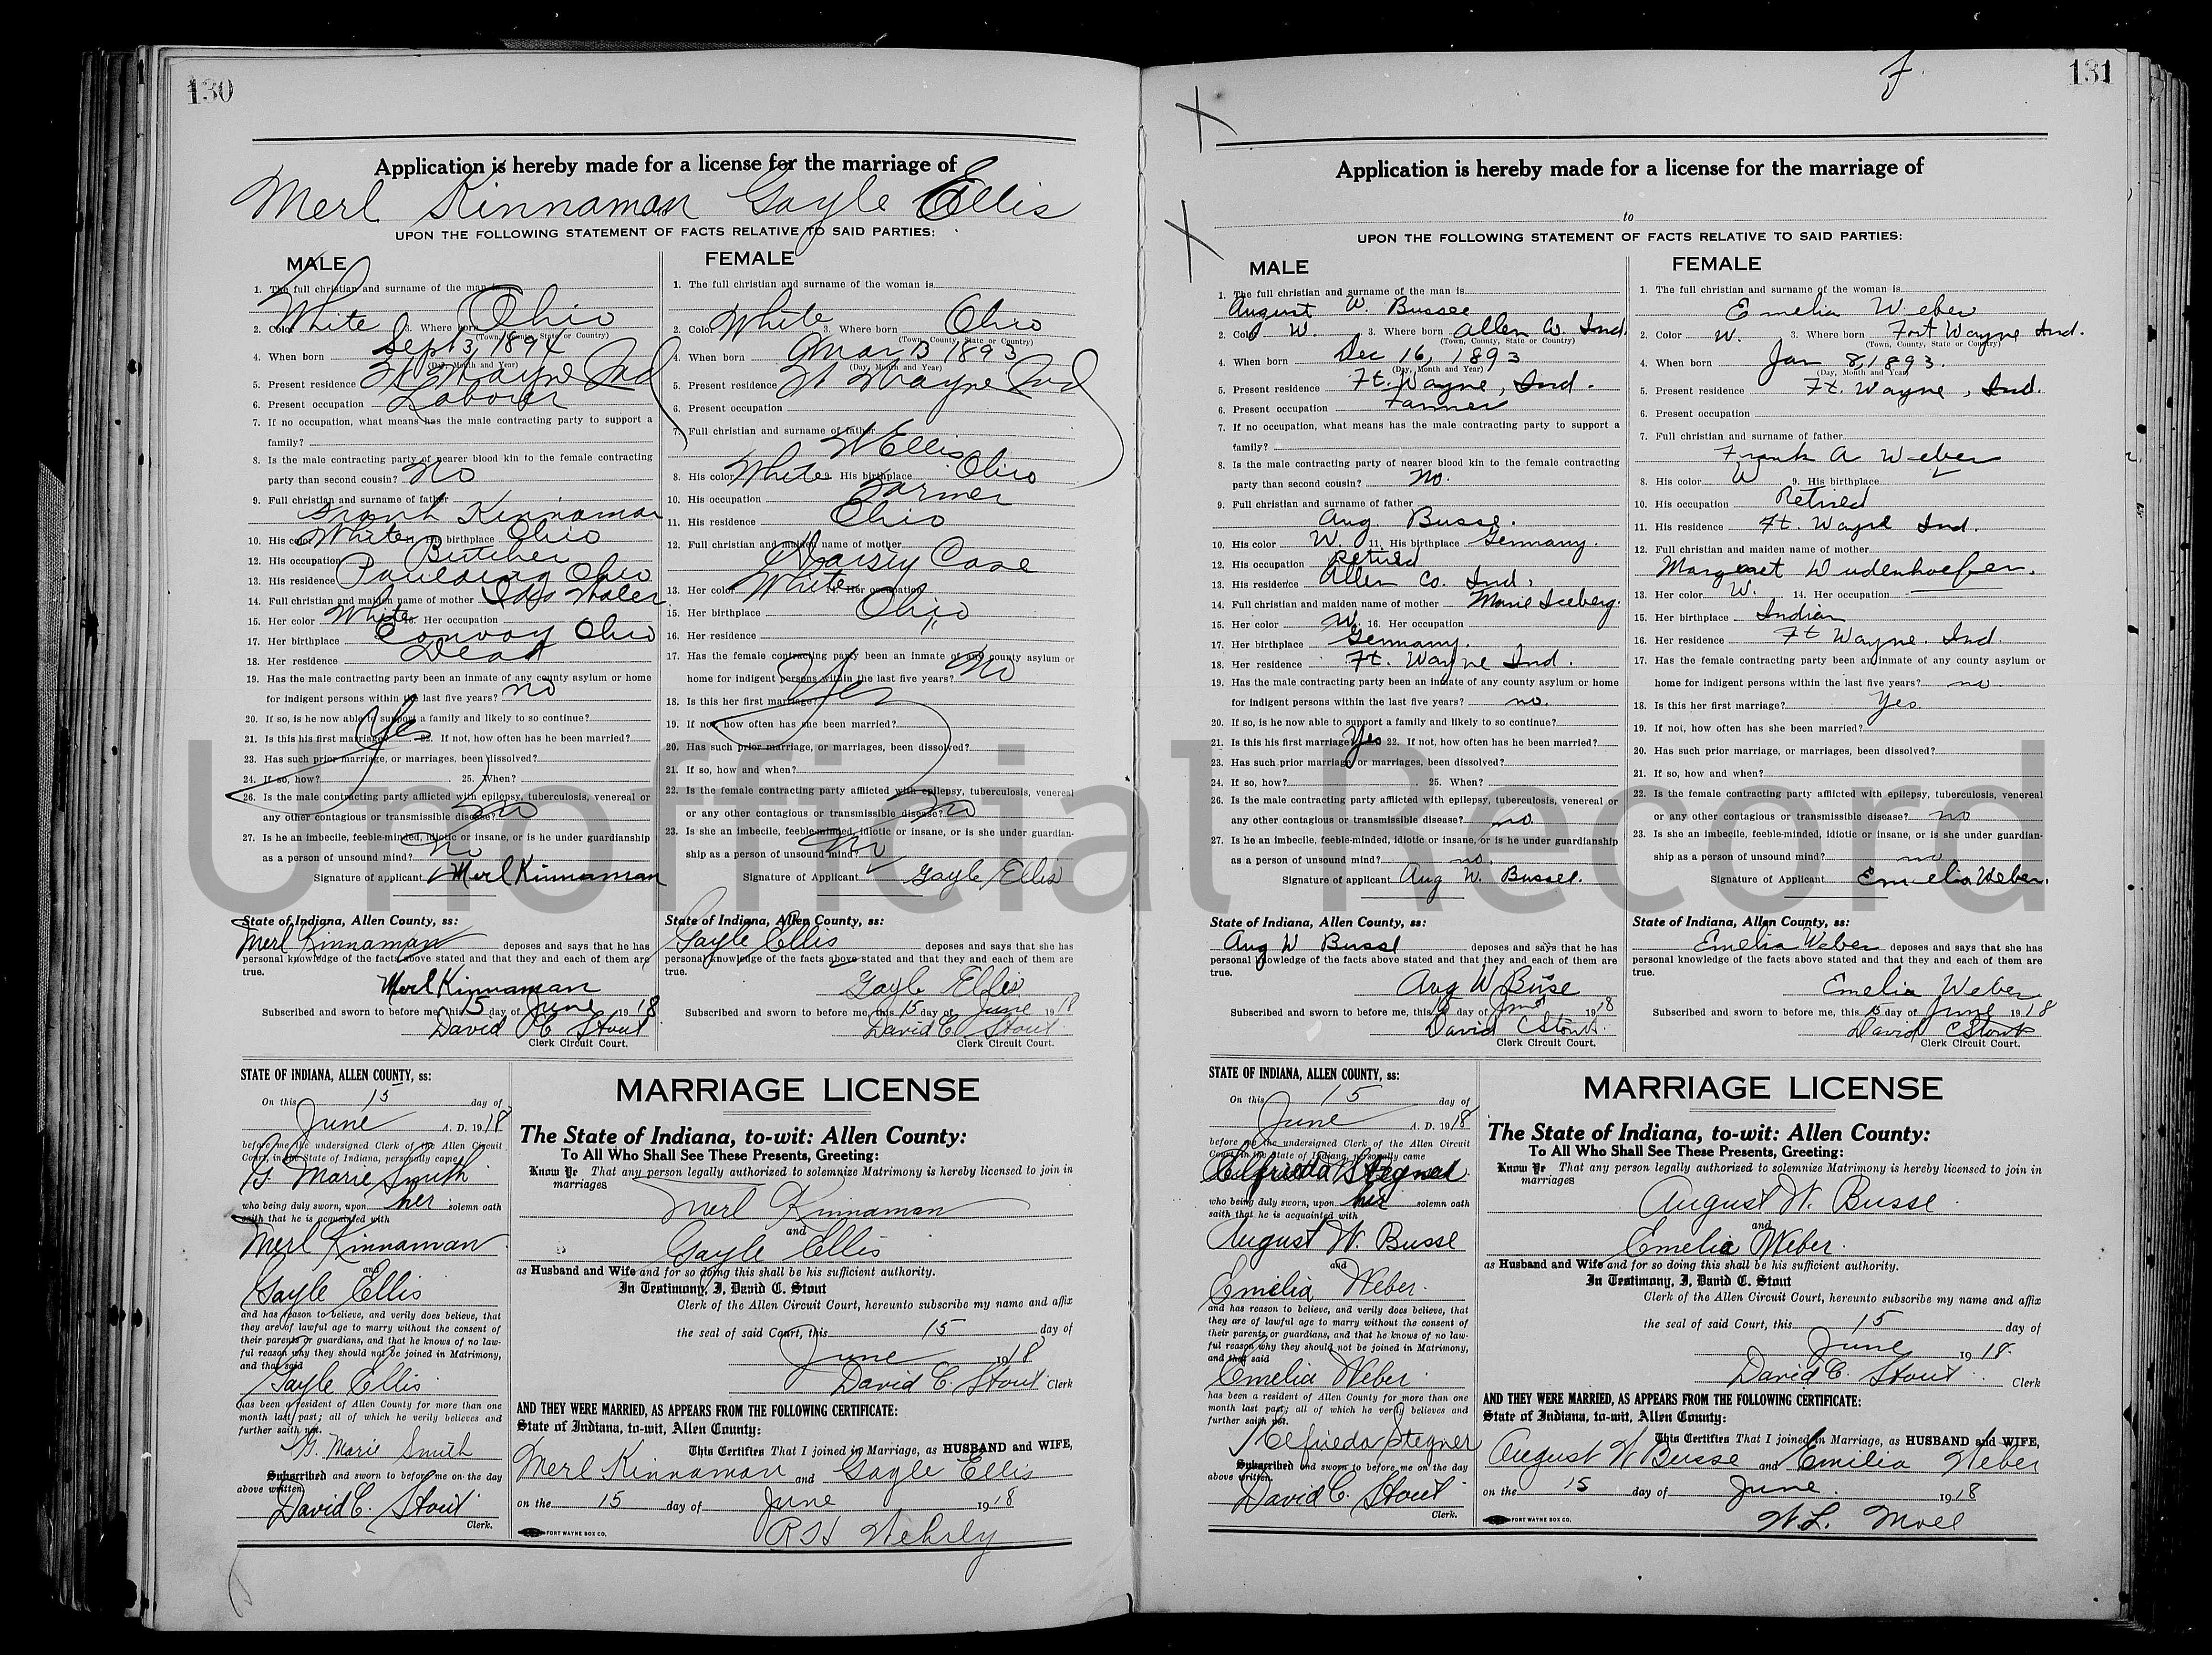 130
Application is hereby made for a license for the marriage of
Merl Kinnaman to Gayle Ellis
UPON THE FOLLOWING STATEMENT OF FACTS RELATIVE TO SAID PARTIES:
MALE
1. The full christian and surname of the man is
2. Color White 3. Where born Ohio
(Town, County, State or Country)
4. When born Sept 3, 1894
(Day, Month and Year)
5. Present residence Ft Wayne Ind
6. Present occupation Laborer
7. If no occupation, what means has the male contracting party to support a
family?
8. Is the male contracting party of nearer blood kin to the female contracting
party than second cousin? No
9. Full christian and surname of father
Frank Kinnaman
10. His color White 11. His birthplace Ohio
12. His occupation Butcher
13. His residence Paulding Ohio
14. Full christian and maiden name of mother
15. Her color White 16. Her occupation
17. Her birthplace Convoy Ohio
18. Her residence Dead
19. Has the male contracting party been an inmate of any county asylum or home
for indigent persons within the last five years? no
20. If so, is he now able to support a family and likely to so continue?
21. Is this his first marriage? Yes 22. If not, how often has he been married?
23. Has such prior marriage, or marriages, been dissolved?
24. If so, how? 25. When?
26. Is the male contracting party afflicted with epilepsy, tuberculosis, venereal or
any other contagious or transmissible disease? No
27. Is he an imbecile, feeble-minded, idiotic or insane, or is he under guardianship
as a person of unsound mind? No
Signature of applicant Merl Kinnaman
State of Indiana, Allen County, ss:
Merl Kinnaman deposes and says that he has
personal knowledge of the facts above stated and that they and each of them are
true.
Merl Kinnaman
Subscribed and sworn to before me, this 15 day of June 1918
David C Stout
Clerk Circuit Court.
FEMALE
1. The full christian and surname of the woman is
2. Color White 3. Where born Ohio
(Town, County, State or Country)
4. When born Mar 13 1893
(Day, Month and Year)
5. Present residence Ft Wayne Ind
6. Present occupation
7. Full christian and surname of father
W Ellis
8. His color White 9. His birthplace Ohio
10. His occupation Farmer
11. His residence Ohio
12. Full christian and maiden name of mother
Case
13. Her color White 14. Her occupation
15. Her birthplace Ohio
16. Her residence "
17. Has the female contracting party been an inmate of any county asylum or
home for indigent persons within the last five years? No
18. Is this her first marriage? Yes
19. If not, how often has she been married?
20. Has such prior marriage, or marriages, been dissolved?
21. If so, how and when?
22. Is the female contracting party afflicted with epilepsy, tuberculosis, venereal
or any other contagious or transmissible disease? No
23. Is she an imbecile, feeble-minded, idiotic or insane, or is she under guardian-
ship as a person of unsound mind? No
Signature of Applicant Gayle Ellis
State of Indiana, Allen County, ss:
Gayle Ellis deposes and says that she has
personal knowledge of the facts above stated and that they and each of them are
true.
Gayle Ellis
Subscribed and sworn to before me, this 15 day of June 1918
David C Stout
Clerk Circuit Court.
STATE OF INDIANA, ALLEN COUNTY, ss:
On this 15 day of
June A. D. 1918
before me the undersigned Clerk of the Allen Circuit
Court, in the State of Indiana, personally came
G. Marie Smith
who being duly sworn, upon her solemn oath
saith that he is acquainted with
Merl Kinnaman
and
Gayle Ellis
and has reason to believe, and verily does believe, that
they are of lawful age to marry without the consent of
their parents or guardians, and that he knows of no law-
ful reason why they should not be joined in Matrimony,
and that said
Gayle Ellis
has been a resident of Allen County for more than one
month last past; all of which he verily believes and
further saith not.
G. Marie Smith
Subscribed and sworn to before me on the day
above written.
David C. Stout
Clerk.
MARRIAGE LICENSE
The State of Indiana, to-wit: Allen County:
To All Who Shall See These Presents, Greeting:
Know Ye That any person legally authorized to solemnize Matrimony is hereby licensed to join in
marriages
Merl Kinnaman
and
Gayle Ellis
as Husband and Wife and for so doing this shall be his sufficient authority.
In Testimony, I, David C. Stout
Clerk of the Allen Circuit Court, hereunto subscribe my name and affix
the seal of said Court, this 15 day of
June 1918
David C. Stout Clerk
AND THEY WERE MARRIED, AS APPEARS FROM THE FOLLOWING CERTIFICATE:
State of Indiana, to-wit, Allen County:
This Certifies That I joined in Marriage, as HUSBAND and WIFE,
Merl Kinnaman and Gayle Ellis
on the 15 day of June 1918
FORT WAYNE BOX CO.
Wehrly
131
Application is hereby made for a license for the marriage of
to
UPON THE FOLLOWING STATEMENT OF FACTS RELATIVE TO SAID PARTIES:
MALE
1. The full christian and surname of the man is
August W. Bussee
2. Color W. 3. Where born Allen Co. Ind.
(Town, County, State or Country)
4. When born Dec 16, 1893
(Day, Month and Year)
5. Present residence Ft. Wayne, Ind.
6. Present occupation Farmer
7. If no occupation, what means has the male contracting party to support a
family?
8. Is the male contracting party of nearer blood kin to the female contracting
party than second cousin? No.
9. Full christian and surname of father
Aug. Busse.
10. His color W. 11. His birthplace Germany.
12. His occupation Retired
13. His residence Allen Co. Ind.
14. Full christian and maiden name of mother Marie Iceberg.
15. Her color W. 16. Her occupation
17. Her birthplace Germany.
18. Her residence Ft. Wayne Ind.
19. Has the male contracting party been an inmate of any county asylum or home
for indigent persons within the last five years? no.
20. If so, is he now able to support a family and likely to so continue?
21. Is this his first marriage? Yes 22. If not, how often has he been married?
23. Has such prior marriage, or marriages, been dissolved?
24. If so, how? 25. When?
26. Is the male contracting party afflicted with epilepsy, tuberculosis, venereal or
any other contagious or transmissible disease? no
27. Is he an imbecile, feeble-minded, idiotic or insane, or is he under guardianship
as a person of unsound mind? no.
Signature of applicant Aug W. Bussel.
State of Indiana, Allen County, ss:
Aug W Bussl deposes and says that he has
personal knowledge of the facts above stated and that they and each of them are
true.
Aug W Buse
Subscribed and sworn to before me, this 15 day of June 1918
David C Stout.
Clerk Circuit Court.
FEMALE
1. The full christian and surname of the woman is
Emelia Weber
2. Color W. 3. Where born Fort Wayne Ind.
(Town, County, State or Country)
4. When born Jan 8, 1893.
(Day, Month and Year)
5. Present residence Ft. Wayne, Ind.
6. Present occupation
7. Full christian and surname of father
Frank A Weber
8. His color W 9. His birthplace
10. His occupation Retired
11. His residence Ft. Wayne Ind.
12. Full christian and maiden name of mother
Margaret
13. Her color W. 14. Her occupation
15. Her birthplace Indian
16. Her residence Ft Wayne. Ind.
17. Has the female contracting party been an inmate of any county asylum or
home for indigent persons within the last five years? no
18. Is this her first marriage? Yes
19. If not, how often has she been married?
20. Has such prior marriage, or marriages, been dissolved?
21. If so, how and when?
22. Is the female contracting party afflicted with epilepsy, tuberculosis, venereal
or any other contagious or transmissible disease? no
23. Is she an imbecile, feeble-minded, idiotic or insane, or is she under guardian-
ship as a person of unsound mind? no
Signature of Applicant Emelia Weber.
State of Indiana, Allen County, ss:
Emelia Weber deposes and says that she has
personal knowledge of the facts above stated and that they and each of them are
true.
Emelia Weber
Subscribed and sworn to before me, this 15 day of June 1918
David C Stout
Clerk Circuit Court.
STATE OF INDIANA, ALLEN COUNTY, ss:
On this 15 day of
June A. D. 1918
before me the undersigned Clerk of the Allen Circuit
Court, in the State of Indiana, personally came
Elfrieda Stegner
who being duly sworn, upon her solemn oath
saith that he is acquainted with
August W. Busse
and
Emelia Weber.
and has reason to believe, and verily does believe, that
they are of lawful age to marry without the consent of
their parents or guardians, and that he knows of no law-
ful reason why they should not be joined in Matrimony,
and that said
Emelia Weber
has been a resident of Allen County for more than one
month last past; all of which he verily believes and
further saith not.
Elfrieda Stegner
Subscribed and sworn to before me on the day
above written.
David C. Stout
Clerk.
MARRIAGE LICENSE
The State of Indiana, to-wit: Allen County:
To All Who Shall See These Presents, Greeting:
Know Ye That any person legally authorized to solemnize Matrimony is hereby licensed to join in
marriages
August W. Busse
and
Emelia Weber.
as Husband and Wife and for so doing this shall be his sufficient authority.
In Testimony, I, David C. Stout
Clerk of the Allen Circuit Court, hereunto subscribe my name and affix
the seal of said Court, this 15 day of
June 1918.
David C. Stout Clerk
AND THEY WERE MARRIED, AS APPEARS FROM THE FOLLOWING CERTIFICATE:
State of Indiana, to-wit, Allen County:
This Certifies That I joined in Marriage, as HUSBAND and WIFE,
August W Busse and Emilia Weber
on the 15 day of June. 1918
FORT WAYNE BOX CO.
W. L. Moll
Unofficial Record